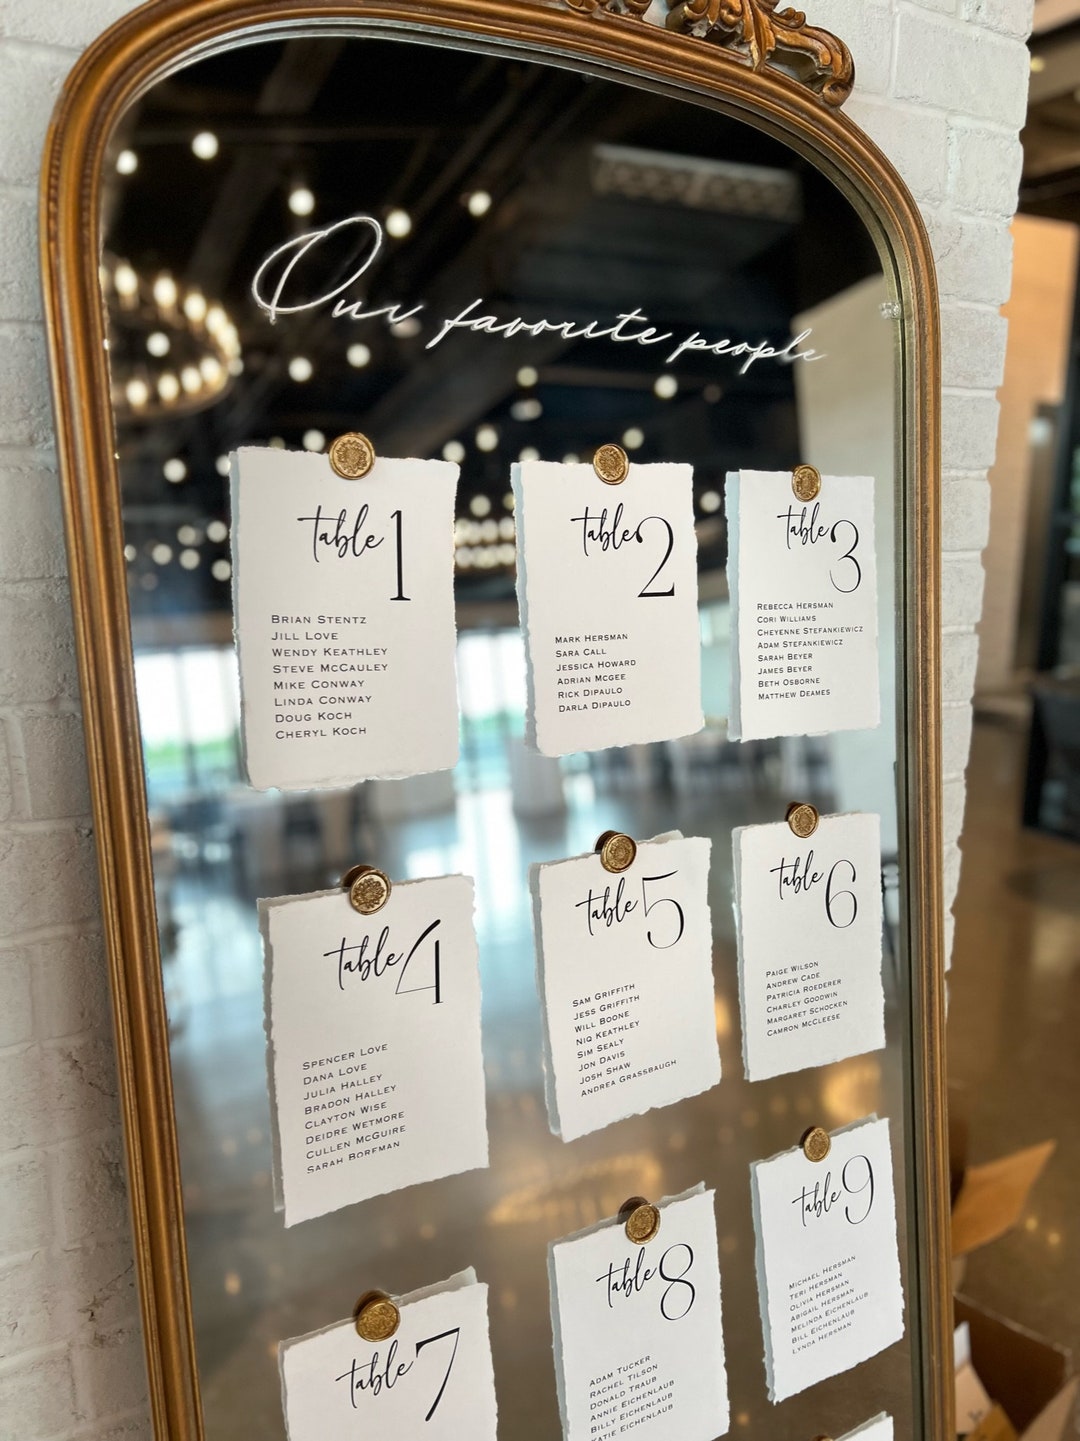 Our favorite people
table 1
BRIAN STENTZ
JILL LOVE
WENDY KEATHLEY
STEVE MCCAULEY
MIKE CONWAY
LINDA CONWAY
DOUG KOCH
CHERYL KOCH
table 2
MARK HERSMAN
SARA CALL
JESSICA HOWARD
ADRIAN MCGEE
RICK DIPAULO
DARLA DIPAULO
table 3
REBECCA HERSMAN
CORI WILLIAMS
CHEYENNE STEFANKIEWICZ
ADAM STEFANKIEWICZ
SARAH BEYER
JAMES BEYER
BETH OSBORNE
MATTHEW DEAMES
table 4
SPENCER LOVE
DANA LOVE
JULIA HALLEY
BRADON HALLEY
CLAYTON WISE
DEIDRE WETMORE
CULLEN MCGUIRE
SARAH BORFMAN
table 5
SAM GRIFFITH
JESS GRIFFITH
WILL BOONE
NIQ KEATHLEY
SIM SEALY
JON DAVIS
JOSH SHAW
ANDREA GRASSBAUGH
table 6
PAIGE WILSON
ANDREW CADE
PATRICIA ROEDERER
CHARLEY GOODWIN
MARGARET SCHOCKEN
CAMRON MCCLEESE
table 7
table 8
ADAM TUCKER
RACHEL TILSON
DONALD TRAUB
ANNIE EICHENLAUB
BILLY EICHENLAUB
KATIE EICHENLAUB
table 9
MICHAEL HERSMAN
TERI HERSMAN
OLIVIA HERSMAN
ABIGAIL HERSMAN
MELINDA EICHENLAUB
BILL EICHENLAUB
LYNDA HERSMAN